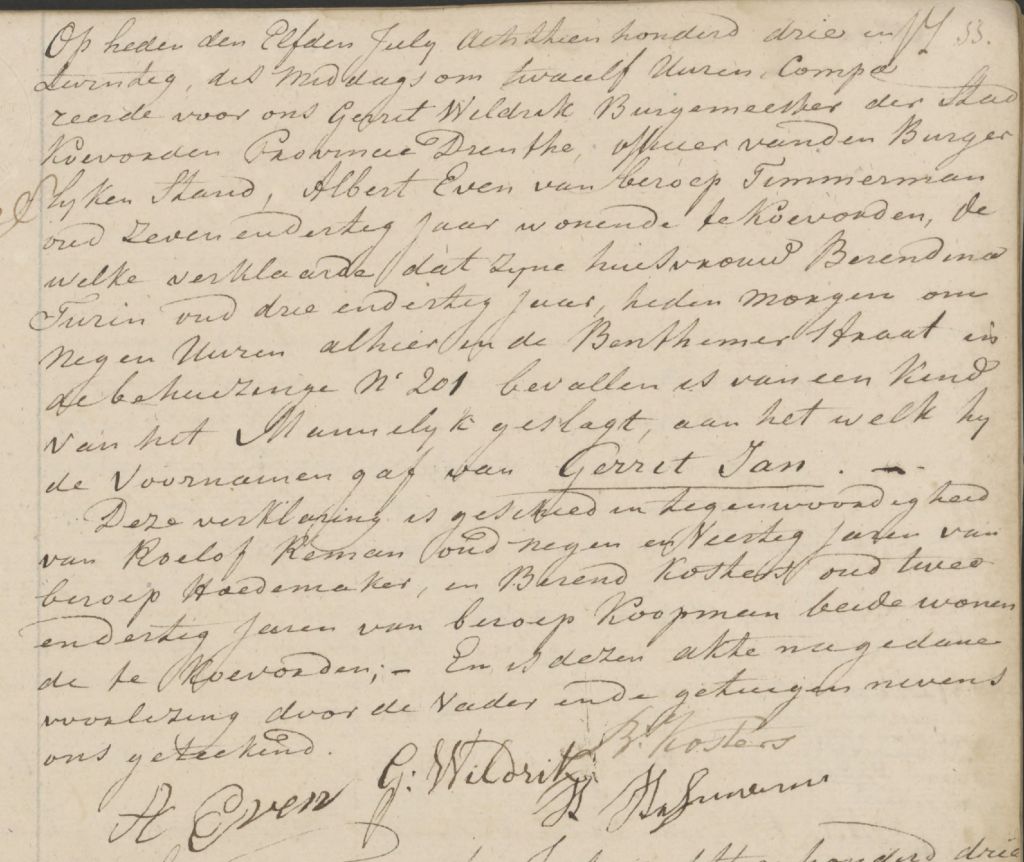 Op heden den Elfden July Achthien honderd drie en 53.
twindteg, des Middags om twaalf Uuren, Compa
reerde voor ons Gerrit Wildrik Burgemeester der Stad
Koevorden Provincie Drenthe, officier vanden Burger
lyken Stand, Albert Even van beroep Timmerman
oud zeven enderteg Jaar wonende te Koevorden, de
welke verklaarde dat zyne huisvrouw Berendina
Turin oud drie endertig Jaar, heden morgen om
Negen Uuren alhier in de Benthemer Straat in
de behuizinge N° 201 bevallen is van een Kind
van het Mannelyk geslagt, aan het welk hy
de Voornamen gaf van Gerret Jan. —
Deze verklaring is geschied in tegenwoordigheid
van Roelof Reman oud negen en Veerteg Jaren van
beroep Hoedemaker, en Berend Kosters oud twee
endertig Jaren van beroep Koopman beide wonen
de te Koevorden; — En is dezen akte na gedane
voorlezing door de Vader en de getuigen nevens
ons geteekend.
B. Kosters
G: Wildrik
A Even